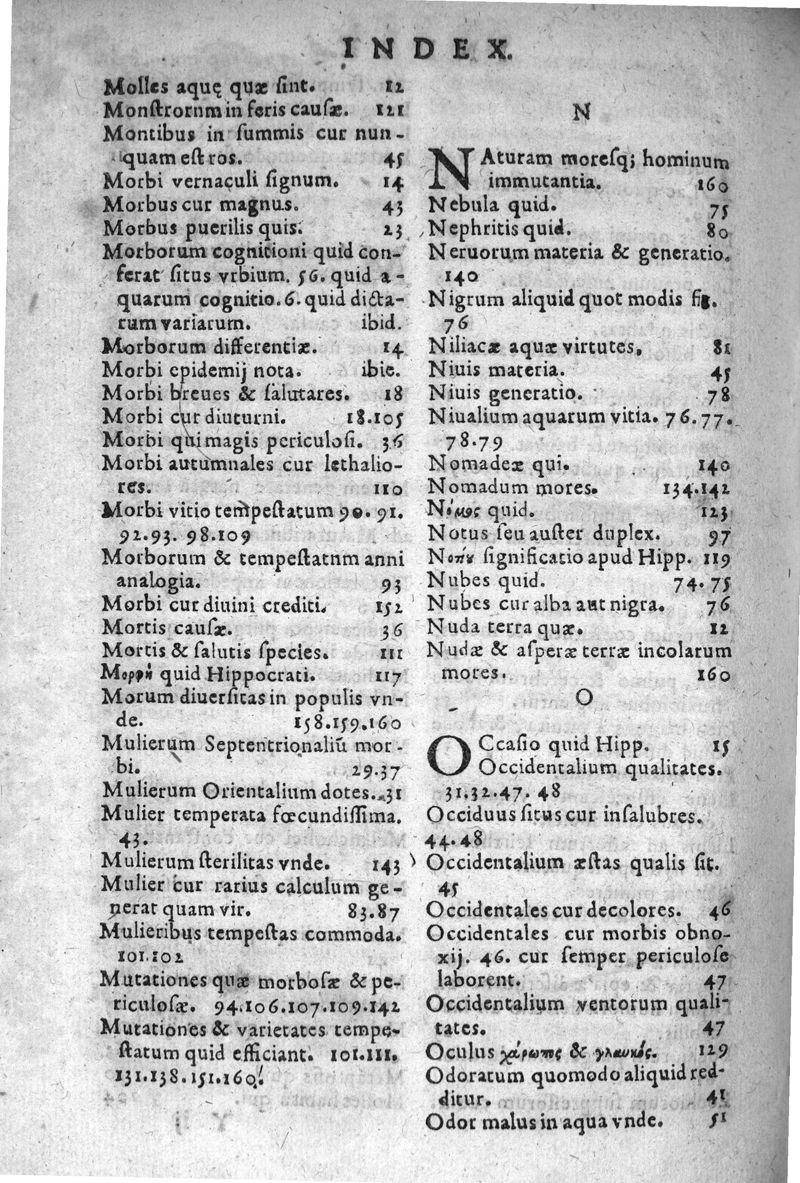 INDEX.
Molles aquę quæ ſint. 12
Monſtrornm in feris cauſæ. 121
Montibus in ſummis cur nun-
quam eſt ros. 45
Morbi vernaculi ſignum. 14
Morbus cur magnus. 43
Morbus puerilis quis. 23
Morborum cognitioni quid con-
ferat ſitus vrbium. 56. quid a-
quarum cognitio. 6. quid dicta-
rum variarum. ibid.
Morborum differentiæ. 14
Morbi epidemij nota. ibie.
Morbi breues & ſalutares. 18
Morbi cur diuturni. 18.105
Morbi qui magis periculoſi. 36
Morbi autumnales cur lethalio-
res. 110
Morbi vitio tempeſtatum 90. 91.
92.93. 98.109
Morborum & tempeſtatnm anni
analogia. 93
Morbi cur diuini crediti. 152
Mortis cauſæ. 36
Mortis & ſalutis ſpecies. 111
Μορφὴ quid Hippocrati. 117
Morum diuerſitas in populis vn-
de. 158.159.160
Mulierum Septentrionaliū mor-
bi. 29.37
Mulierum Orientalium dotes. 31
Mulier temperata fœcundiſſima.
43.
Mulierum ſterilitas vnde. 143
Mulier cur rarius calculum ge-
nerat quam vir. 83.87
Mulieribus tempeſtas commoda.
101.102
Mutationes quæ morboſæ & pe-
riculoſæ. 94.106.107.109.142
Mutationes & varietates tempe-
ſtatum quid efficiant. 101.111.
131.138.151.160.
N
NAturam moresq; hominum
immutantia. 160
Nebula quid. 75
Nephritis quid. 80
Neruorum materia & generatio.
140
Nigrum aliquid quot modis fit.
76
Niliacæ aquæ virtutes. 81
Niuis materia. 45
Niuis generatio. 78
Niualium aquarum vitia. 76.77.
78.79
Nomadex qui. 140
Nomadum mores. 134.142
Νόμος quid. 123
Notus ſeu auſter duplex. 97
ſignificatio apud Hipp. 119
Nubes quid. 74.75
Nubes cur alba aut nigra. 76
Nuda terra quæ. 12
Nudæ & aſperæ terræ incolarum
mores. 160
O
OCcaſio quid Hipp. 15
Occidentalium qualitates.
31.32.47. 48
Occiduus ſitus cur inſalubres.
44.48
Occidentalium æſtas qualis ſit.
45
Occidentales cur decolores. 46
Occidentales cur morbis obno-
xij. 46. cur ſemper periculoſe
laborent. 47
Occidentalium ventorum quali-
tates. 47
Oculus χάρωπης & γλαυκός. 129
Odoratum quomodo aliquid red-
ditur. 41
Odor malus in aqua vnde. 51